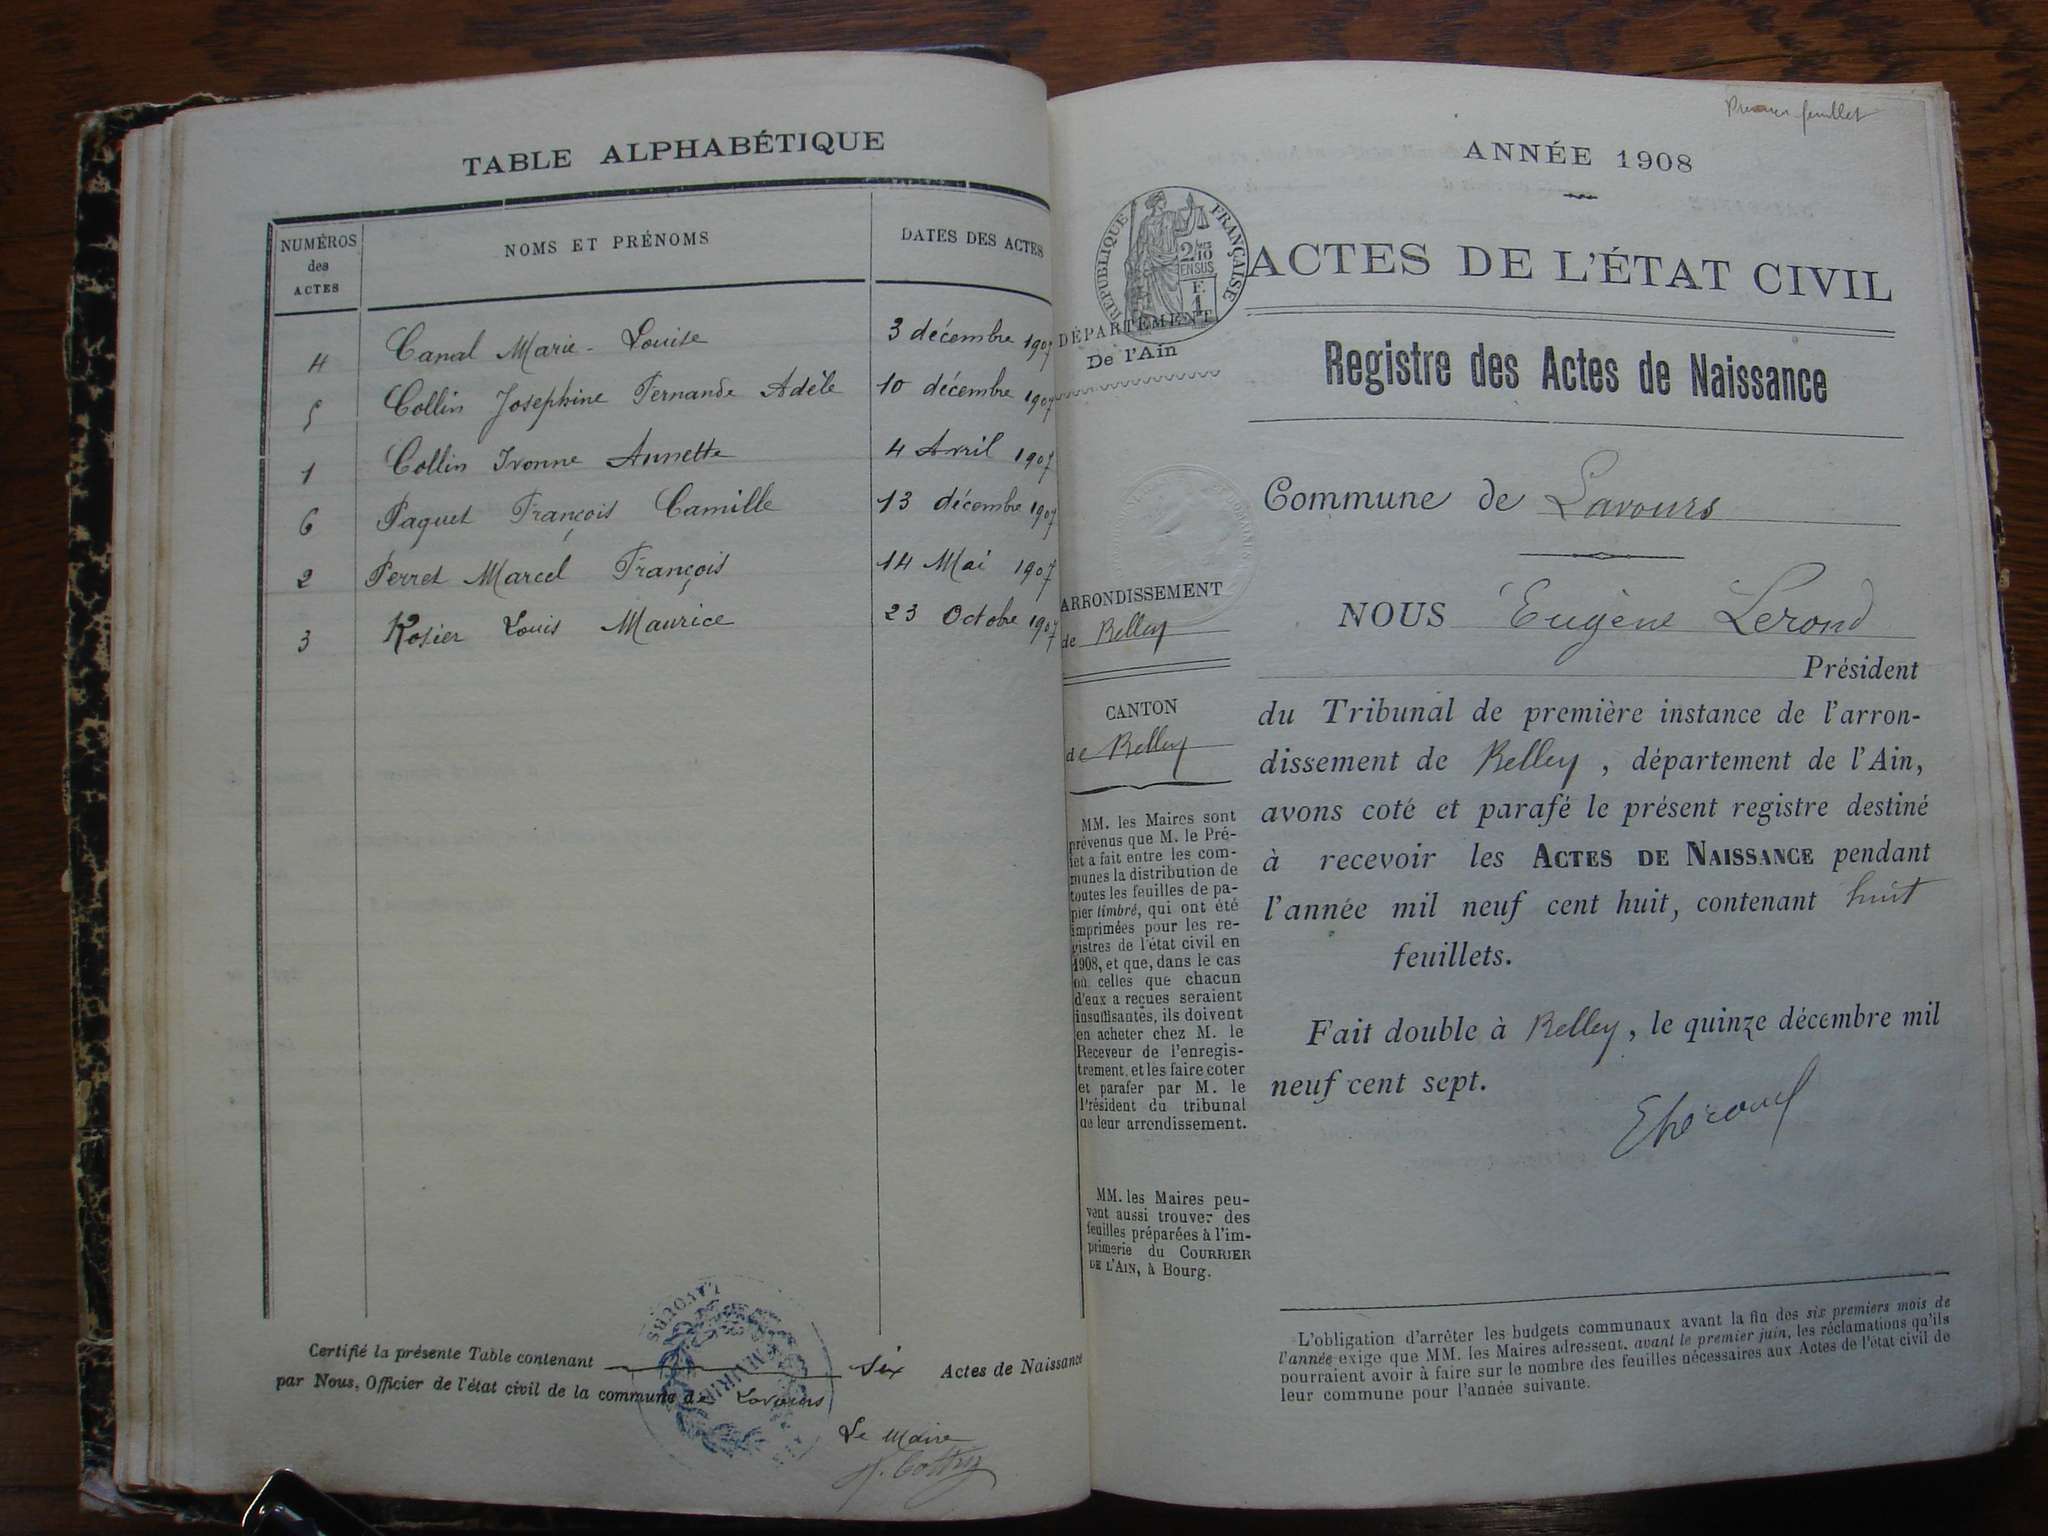 TABLE ALPHABÉTIQUE
NUMÉROS des ACTES
NOMS ET PRÉNOMS
DATES DES ACTES
4 Canal Marie-Louise 3 décembre 1907
5 Collin Josephine Fernande Adèle 10 décembre 1907
1 Collin Ivonne Annette 4 Avril 1907
6 Paquet François Camille 13 décembre 1907
2 Perret Marcel François 14 Mai 1907
3 Rosier Louis Maurice 23 Octobre 1907
Certifié la présente Table contenant six Actes de Naissance
par Nous, Officier de l'état civil de la commune de Lavours
LAVOURS
MAIRIE
Le Maire
Premier feuillet
ANNÉE 1908
RÉPUBLIQUE FRANÇAISE
2/10
EN SUS
F
1
ACTES DE L'ÉTAT CIVIL
DÉPARTEMENT
De l'Ain
Registre des Actes de Naissance
Commune de Lavours
ARRONDISSEMENT
de Belley
CANTON
de Belley
MM. les Maires sont
prévenus que M. le Pré-
fet a fait entre les com-
munes la distribution de
toutes les feuilles de pa-
pier timbré, qui ont été
imprimées pour les re-
gistres de l'état civil en
1908, et que, dans le cas
où celles que chacun
d'eux a reçues seraient
insuffisantes, ils doivent
en acheter chez M. le
Receveur de l'enregis-
trement, et les faire coter
et parafer par M. le
Président du tribunal
de leur arrondissement.
MM. les Maires peu-
vent aussi trouver des
feuilles préparées à l'im-
primerie du COURRIER
DE L'AIN, à Bourg.
NOUS Eugène Lerond
Président
du Tribunal de première instance de l'arron-
dissement de Belley, département de l'Ain,
avons coté et parafé le présent registre destiné
à recevoir les ACTES DE NAISSANCE pendant
l'année mil neuf cent huit, contenant huit
feuillets.
Fait double à Belley, le quinze décembre mil
neuf cent sept.
ELerond
L'obligation d'arrêter les budgets communaux avant la fin des six premiers mois de
l'année exige que MM. les Maires adressent, avant le premier juin, les réclamations qu'ils
pourraient avoir à faire sur le nombre des feuilles nécessaires aux Actes de l'état civil de
leur commune pour l'année suivante.